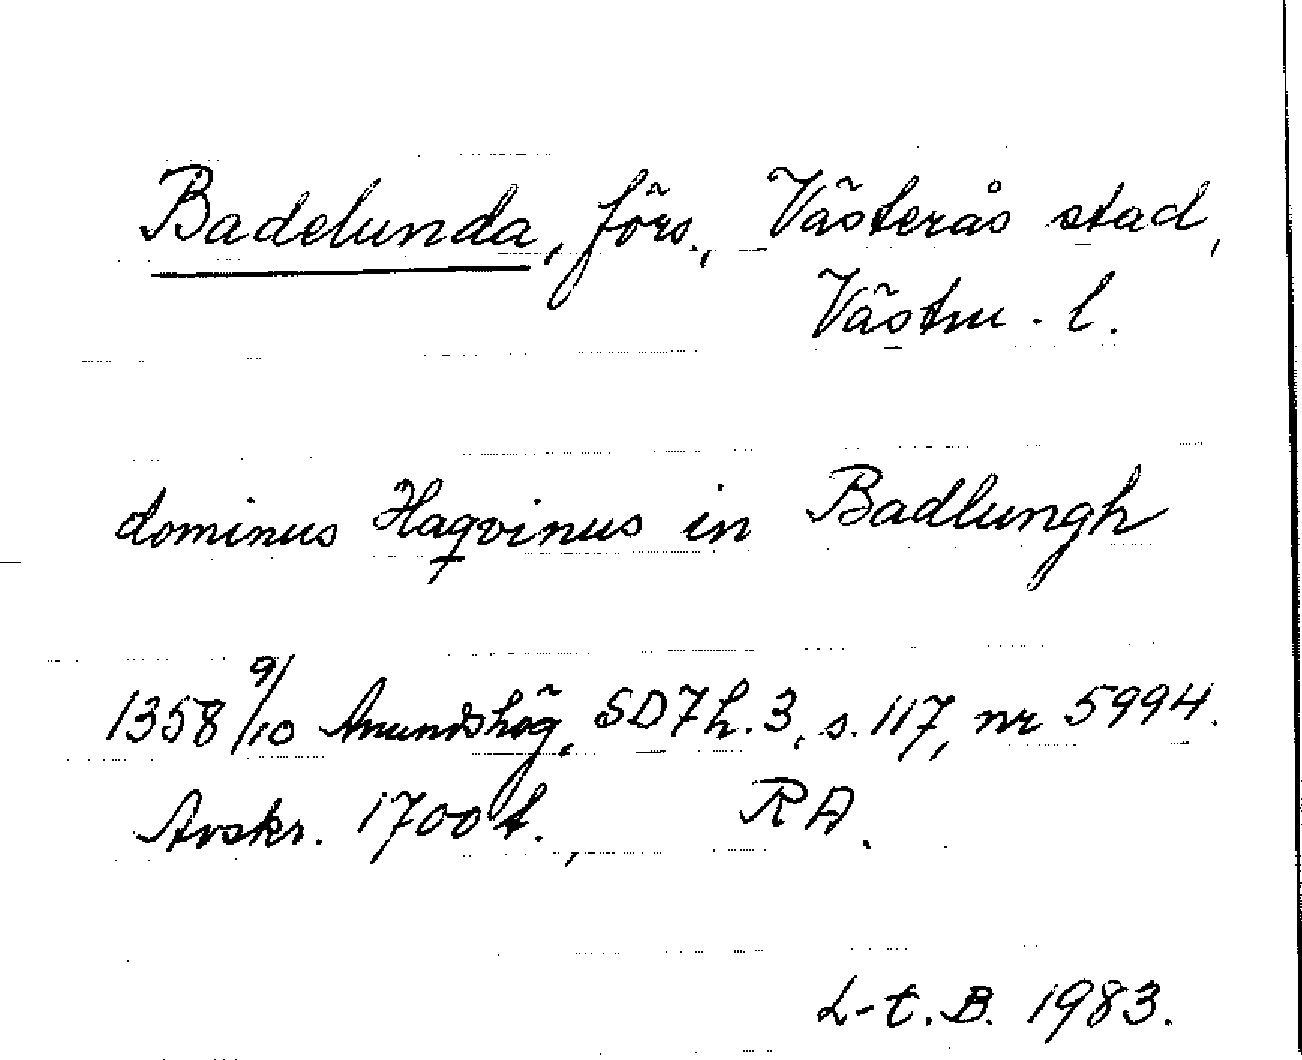 Badelunda, förs., Västerås stad,
Västm. l.
dominus Haqvinus in Badlungh
1358 9/10 Anundshög, SD 7 h. 3, s. 117, nr 5994.
Avskr. 1700 t., RA.
L-t. B. 1983.